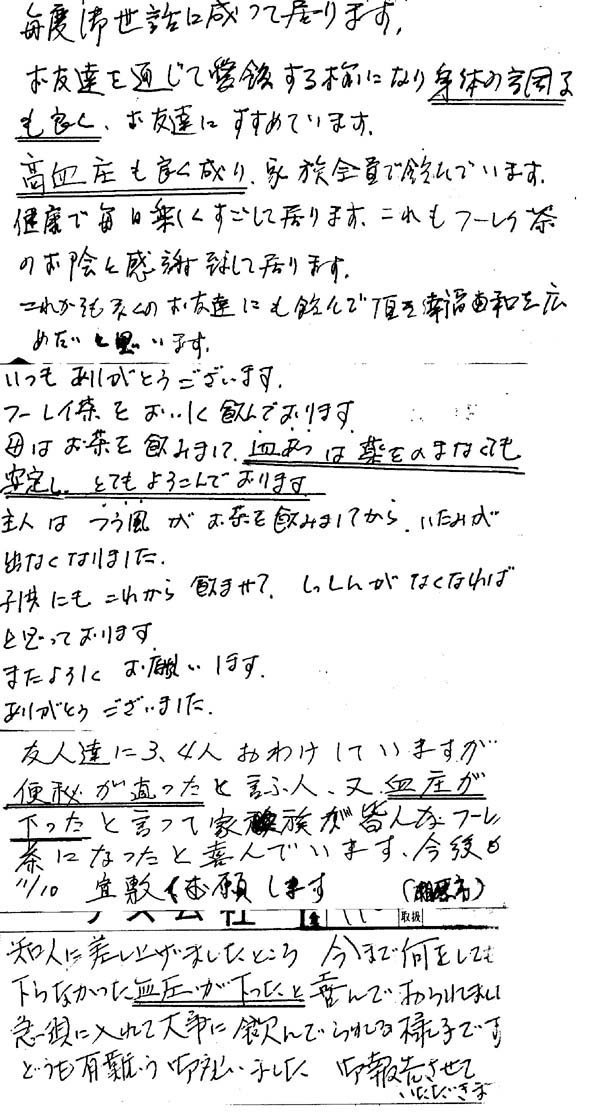 毎度御世話に成って居ります。
お友達を通じて愛飲する様になり身体の
も良く、お友達にすすめています。
高血圧も良く成り、家族全員で飲んでいます。
健康で毎日楽しくすごして居ります。これもフーレイ茶
のお陰と感謝致して居ります。
これからも多くのお友達にも飲んで頂き幸福の和を広
めたいと思います。
いつもありがとうございます。
フーレイ茶をおいしく飲んでおります
母はお茶を飲みまして、血あつは薬をのまなくても
安定し、とてもよろこんでおります
主人はつう風がお茶を飲みましてから、いたみが
出なくなりました。
子供にもこれから飲ませて、しっしんがなくなれば
と思っております
またよろしくお願いします。
ありがとうございました。
友人達に3、4人おわけしていますが
便秘が直ったと言ふ人、又、血圧が
下ったと言って家族が皆んなフーレ
茶になったと喜んでいます、今後も
11/10 宜敷くお願します
取扱
知人に差し上げましたところ 今まで何をしても
下らなかった血圧が下ったと喜んでおられまし
急須に入れて大事に飲んでられる様子です
どうも有難う御座いました 御報告させて
いただきま